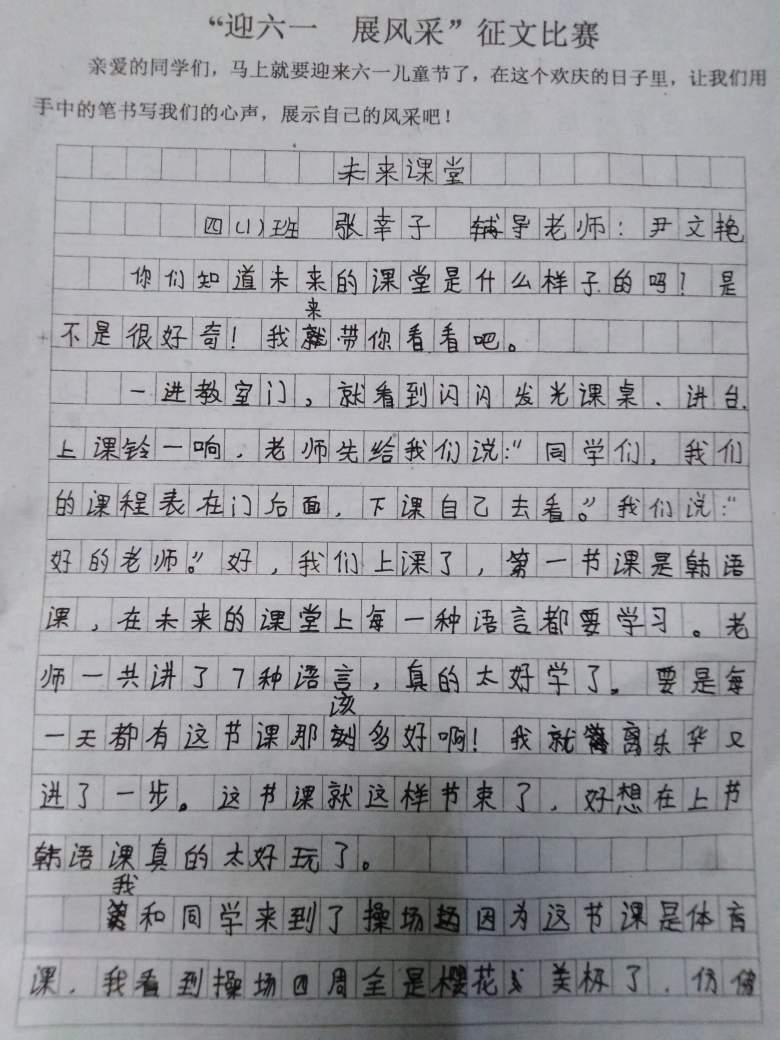 “迎六一 展风采”征文比赛
亲爱的同学们，马上就要迎来六一儿童节了，在这个欢庆的日子里，让我们用
手中的笔书写我们的心声，展示自己的风采吧！
未来课堂
四（1）班 张幸子 辅导老师：尹文艳
你们知道未来的课堂是什么样子的吗？是
不是很好奇！我来带你看看吧。
一进教室门，就看到闪闪发光课桌、讲台，
上课铃一响，老师先给我们说：“同学们，我们
的课程表在门后面，下课自己去看。”我们说：“
好的老师。”好，我们上课了，第一节课是韩语
课，在未来的课堂上每一种语言都要学习。老
师一共讲了7种语言，真的太好学了。要是每
一天都有这节课那该多好啊！我就离乐华又
进了一步。这节课就这样节束了，好想在上节
韩语课真的太好玩了。
我和同学来到了操场因为这节课是体育
课，我看到操场四周全是樱花美极了，仿佛